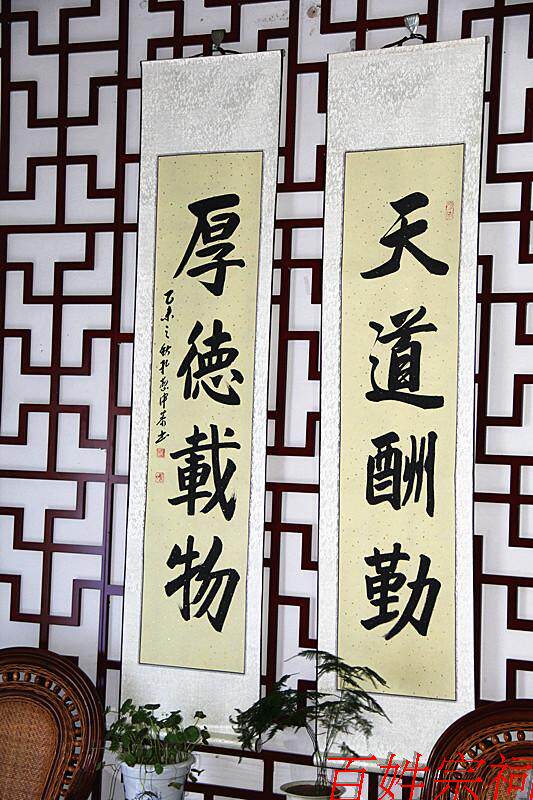 天道酬勤
厚德載物
乙未之秋
百姓宗祠